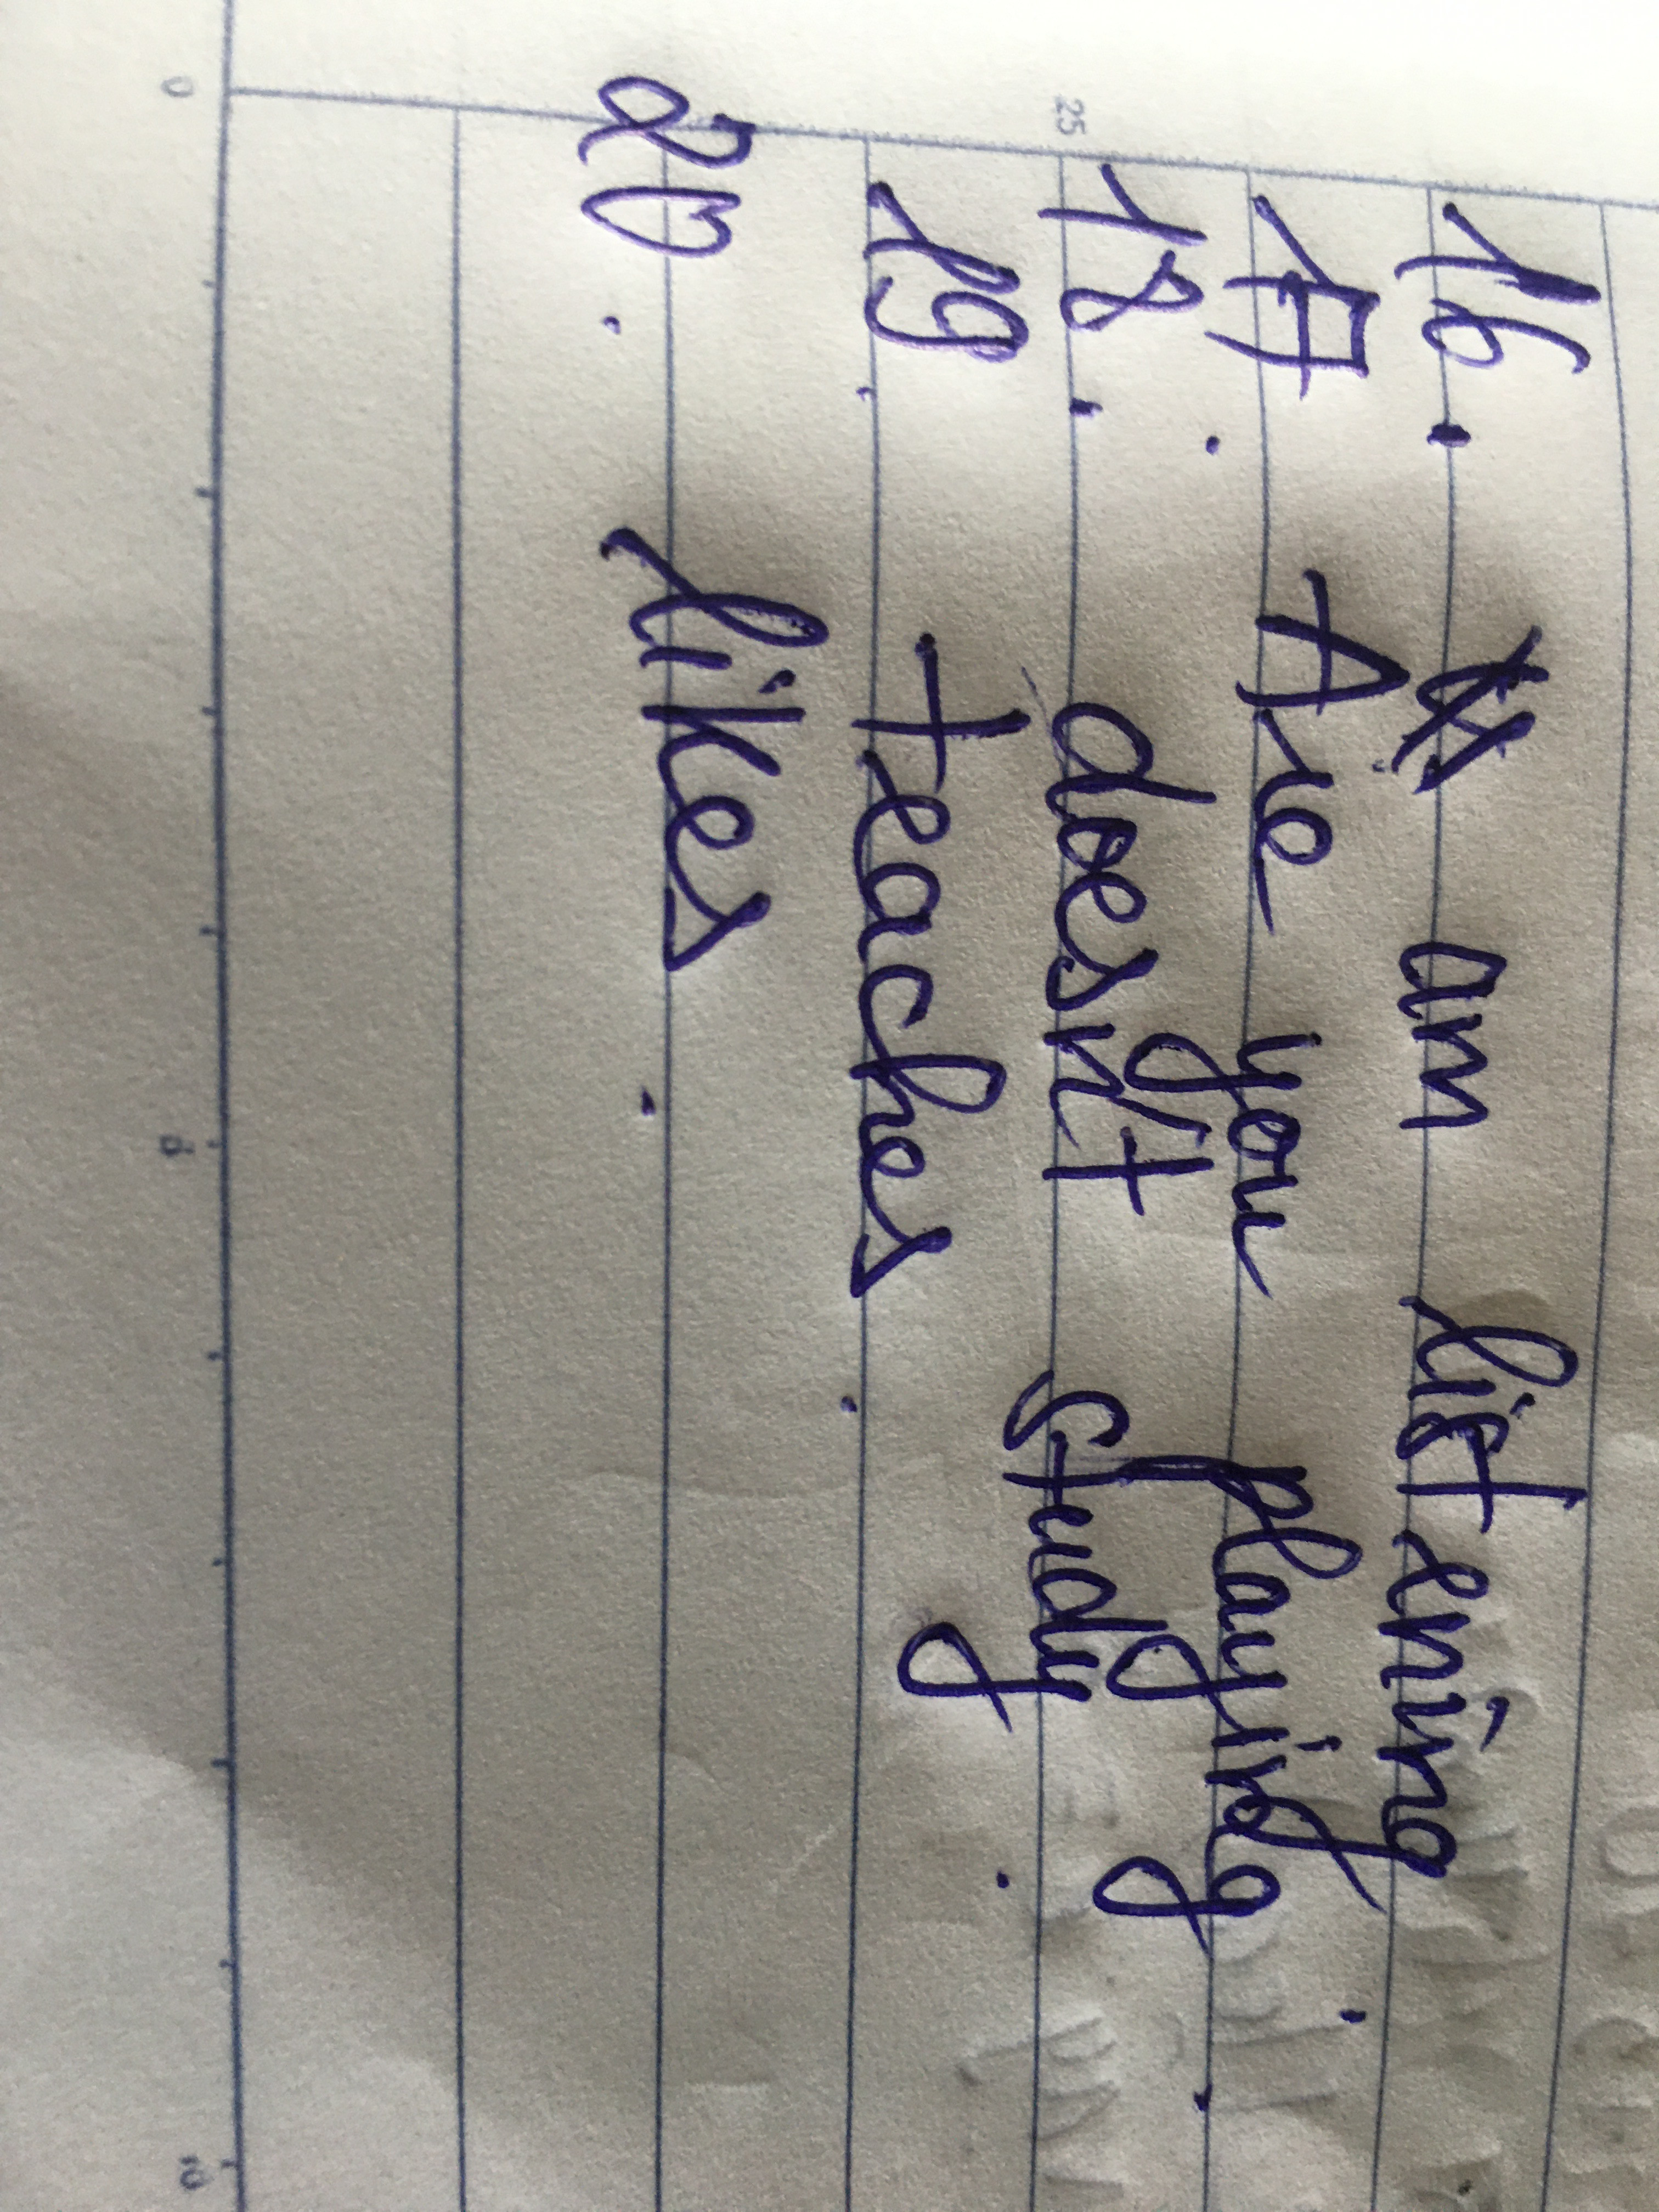 25
16. am listening.
17. Are you playing.
18. doesn't study.
19. teaches.
20. likes.
0 5 10